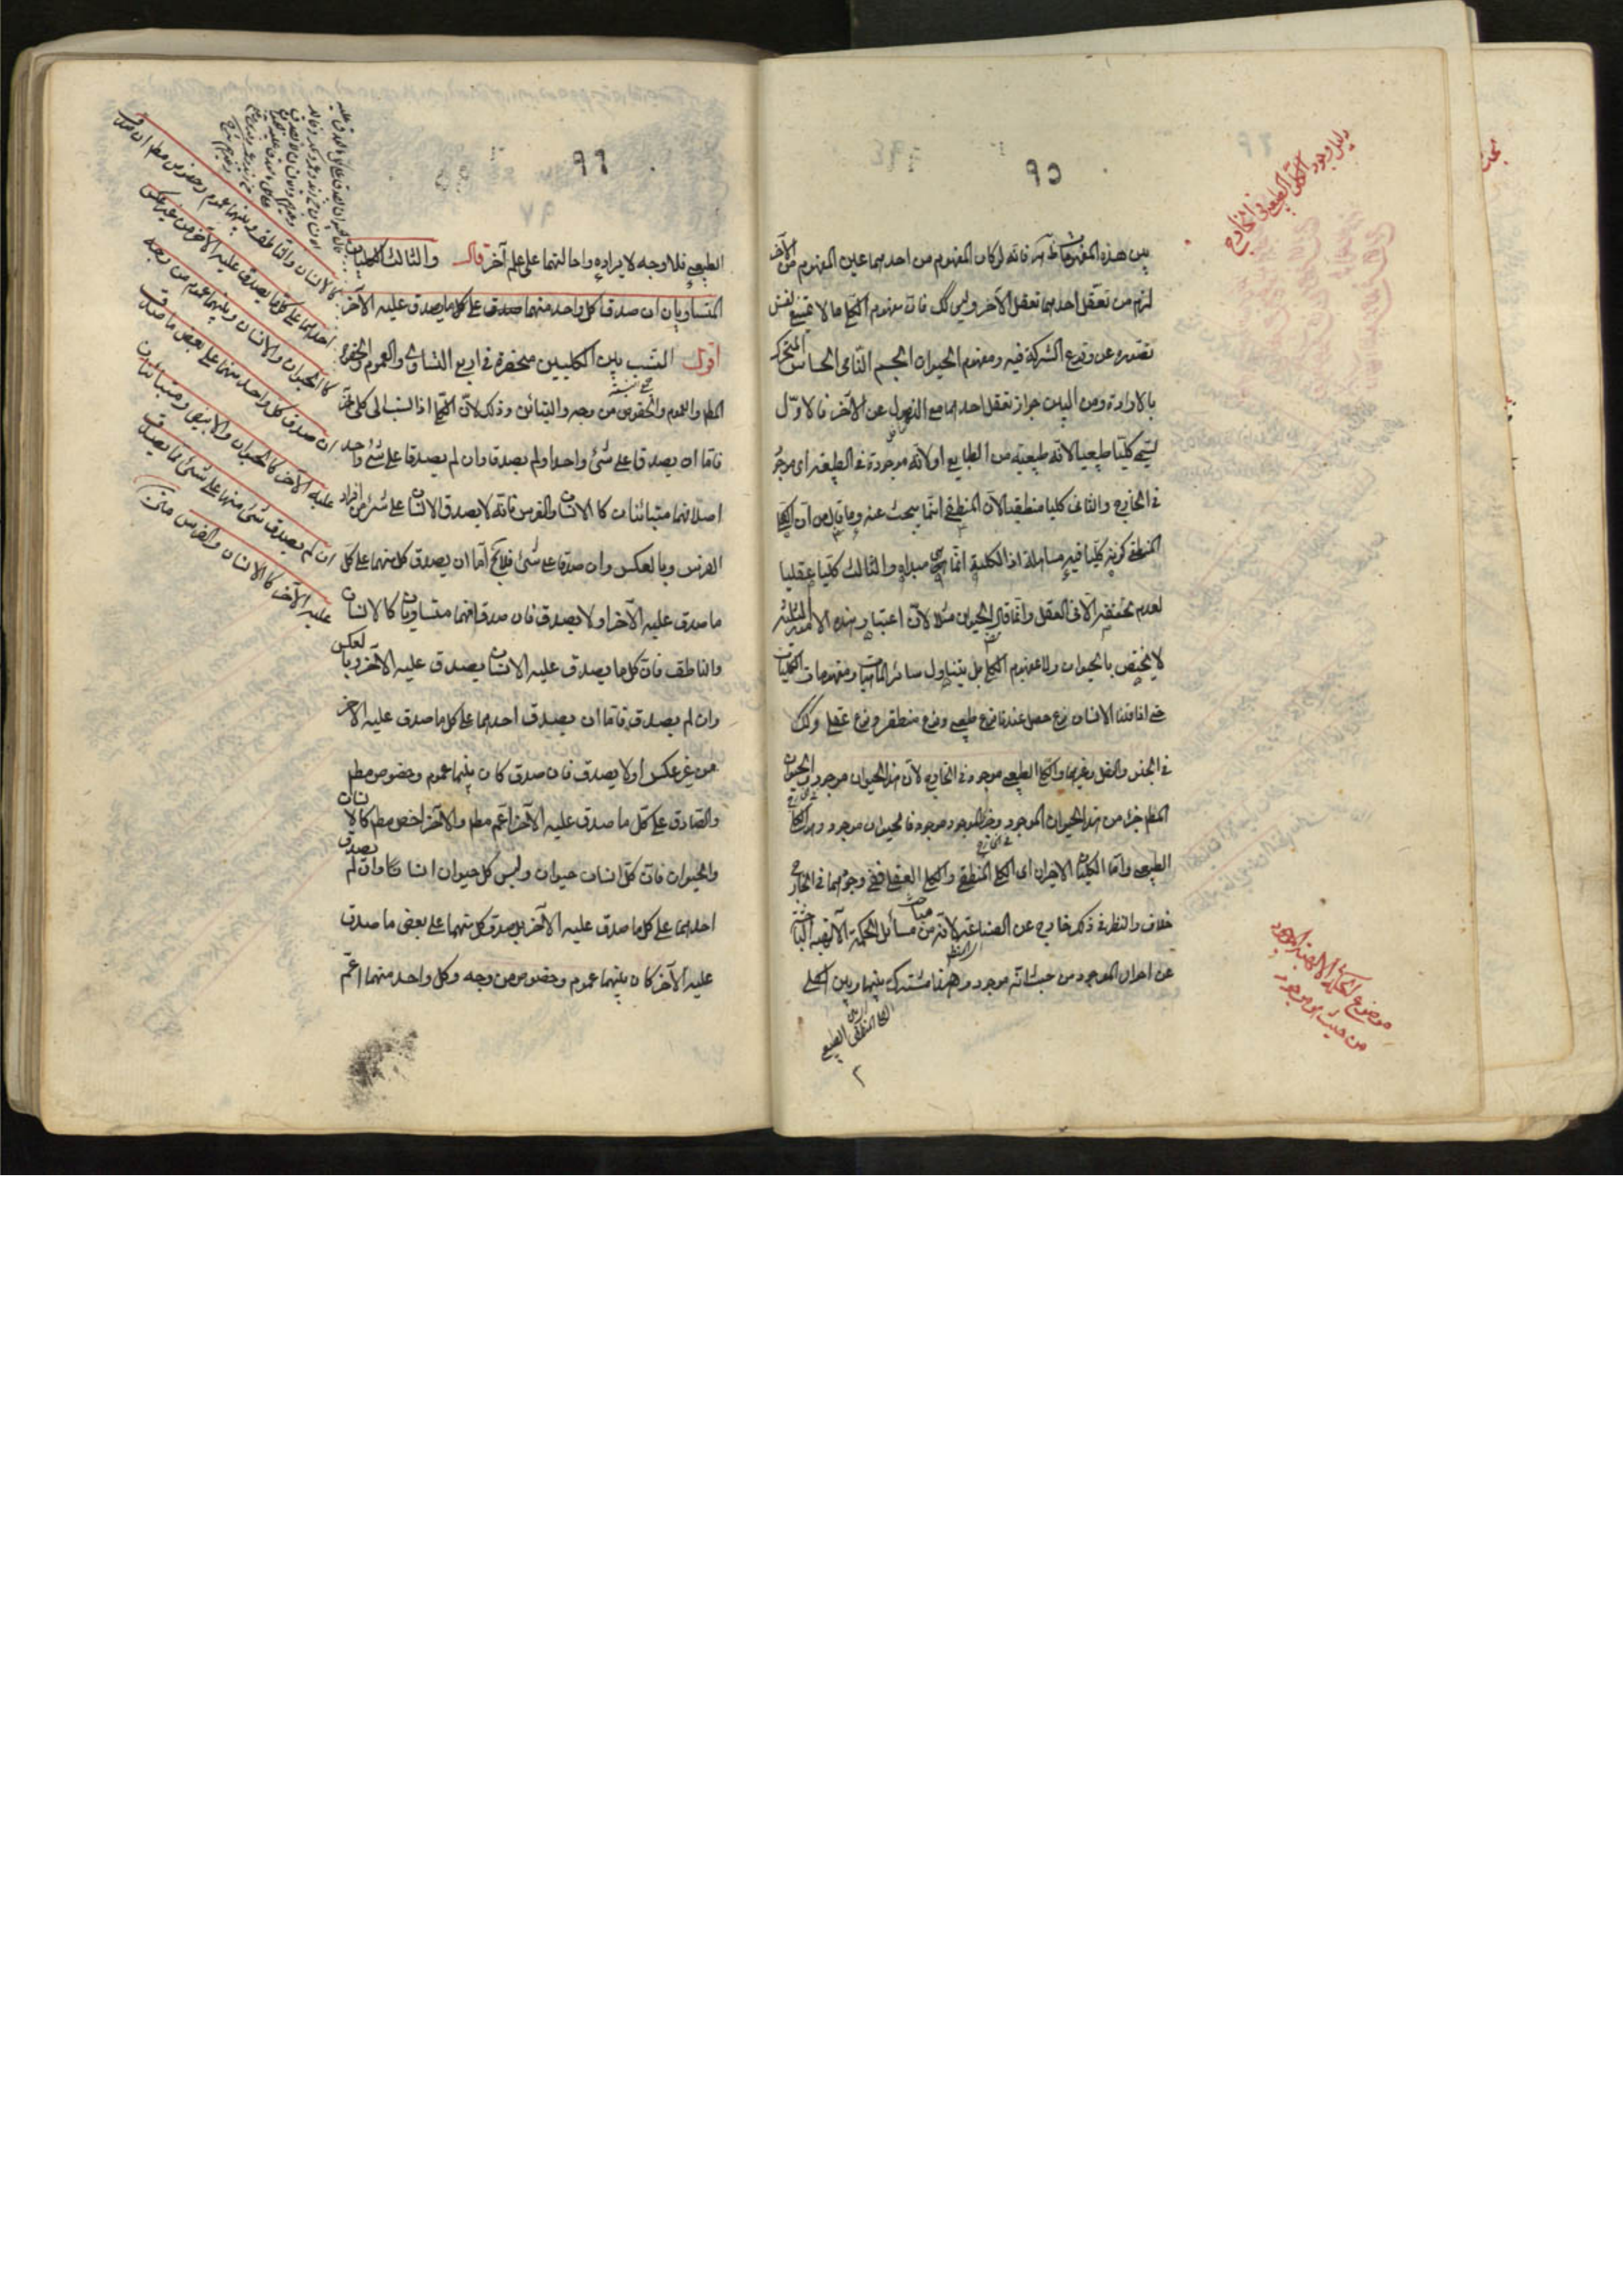 ٩٥
دليل وجود الكلي الطبيعي في الخارج
بين هذه المفهومات ظاهرة فانه لو كان المفهوم من احدهما عين المفهوم من الآخر
لزم من تعقل احدهما تعقل الآخر وليس كك فان مفهوم الكلي ما لا يمنع نفس
تصوره عن وقوع الشركة فيه ومفهوم الحيوان الجسم النامي الحساس المتحرك
بالارادة ومن البين جواز تعقل احدهما مع الذهول عن الآخر فالاول
يسمى كليا طبيعيا لانه طبيعة من الطبايع او لانه موجودة في الطبيعة اى موجود
في الخارج والثاني كليا منطقيا لان المنطقي انما يبحث عنه وما قال من ان الكلي
المنطقي كونه كليا فيه مساهلة اذ الكلية انما هي مبداه والثالث كليا عقليا
لعدم تحققه الا في العقل وانما قال الحيوان مثلا لان اعتبار هذه الامور الثلثة
لا يختص بالحيوان ولا بمفهوم الكلي بل يتناول سائر الماهيات ومفهومات الكليات
حتى اذا قلنا الانسان نوع حصل عندنا نوع طبيعي ونوع منطقي ونوع عقلي وكك
في الجنس والفصل وغيرهما والكلي الطبيعي موجود في الخارج لان هذا الحيوان موجود والحيوان
المطلق جزء من هذا الحيوان الموجود وجزء الموجود موجود فالحيوان موجود وهو الكلي
الطبيعي واما الكليان الاخيران اى الكلي المنطقي والكلي العقلي ففي وجودهما في الخارج
خلاف والنظر في ذلك خارج عن الصناعة لانه من مسائل الحكمة الالهية الباحثة
عن احوال الموجود من حيث انه موجود وهذا مشترك بينهما وبين الكلي
الطبيعي
موضوع الحكمة الالهية الموجود
من حيث هو موجود
٩٦
٩٧
الطبيعي فلا وجه لايراده واحالتهما على علم آخر قال والثالث الكليان
المتساويان ان صدق كل واحد منهما صدق على كل ما يصدق عليه الآخر
اقول النسب بين الكليين منحصرة في اربع التساوي والعموم والخصوص
المطلق والعموم والخصوص من وجه والتباين وذلك لان الكلي اذا نسب الى كلي آخر
فاما ان يصدقا على شئ واحد او لم يصدقا وان لم يصدقا على شئ واحد
اصلا فهما متبائنان كالانسان والفرس فانه لا يصدق الانسان على شئ من افراد
الفرس وبالعكس وان صدقا على شئ فلا يخ اما ان يصدق كل منهما على كل
ما صدق عليه الآخر او لا يصدق فان صدق فهما متساويان كالانسان
والناطق فان كل ما يصدق عليه الانسان يصدق عليه الآخر وبالعكس
وان لم يصدق فاما ان يصدق احدهما على كل ما صدق عليه الآخر
من غير عكس او لا يصدق فان صدق كان بينهما عموم وخصوص مطلق
والصادق على كل ما صدق عليه الآخر اعم مطلق والآخر اخص مطلق كالانسان
والحيوان فان كل انسان حيوان وليس كل حيوان انسانا وان لم يصدق
احدهما على كل ما صدق عليه الآخر بل صدق كل منهما على بعض ما صدق
عليه الآخر كان بينهما عموم وخصوص من وجه وكل واحد منهما اعم
كالانسان والناطق وبينهما عموم وخصوص مطلق ان صدق
احدهما على كل ما يصدق عليه الآخر من غير عكس
كالحيوان والانسان وبينهما عموم من وجه
ان صدق كل واحد منهما على بعض ما صدق
عليه الآخر كالحيوان والابيض ومتباينان
ان لم يصدق شئ منهما على شئ مما يصدق
عليه الآخر كالانسان والفرس متن